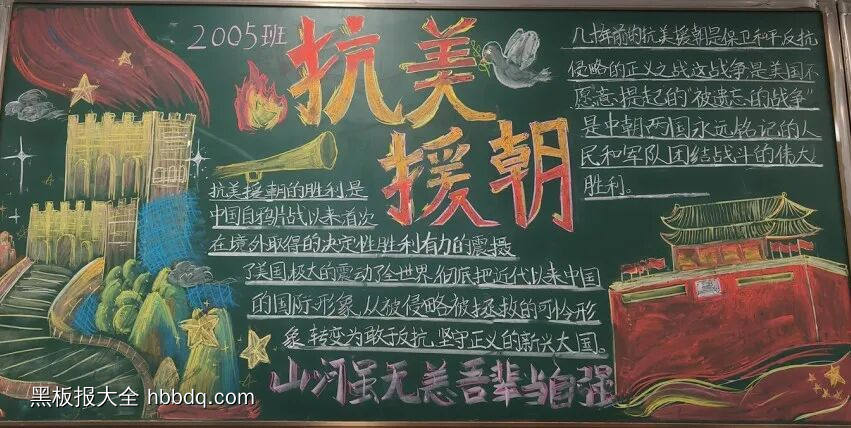 2005班
抗美
援朝
几十年前的抗美援朝是保卫和平反抗
侵略的正义之战这战争是美国不
愿意提起的"被遗忘的战争"
是中朝两国永远铭记的人
民和军队团结战斗的伟大
胜利。
抗美援朝的胜利是
中国自鸦片战以来首次
在境外取得的决定性胜利有力的震摄
了美国极大的震动了全世界彻底把近代以来中国
的国际形象从被侵略被拯救的可怜形
象转变为敢于反抗坚守正义的新兴大国。
山河虽无恙吾辈当自强
黑板报大全 hbbdq.com